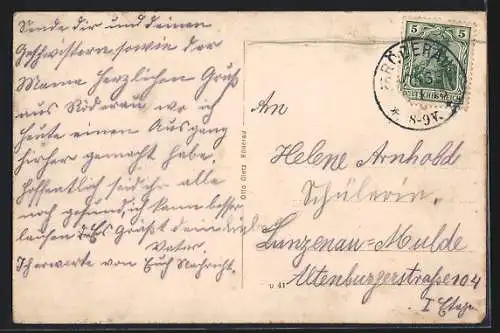 Sende dir und deinen
Geschwistern, sowie der
Mama Herzlichen Gruß
aus Röderau, wo ich
heute einen Ausgang
hierher gemacht habe,
hoffentlich seid ihr alle
noch gesund, ich kann besser
laufen Grüßt dein lieber
Vater.
Ich erwarte von Euch Nachricht.
An
Helene Arnhold
Schülerin.
Lunzenau=Mulde
Altenburgerstraße 104
I Etage
Otto Dietz Röderau
D 41
5 5
RÖDERAU
8-9V.